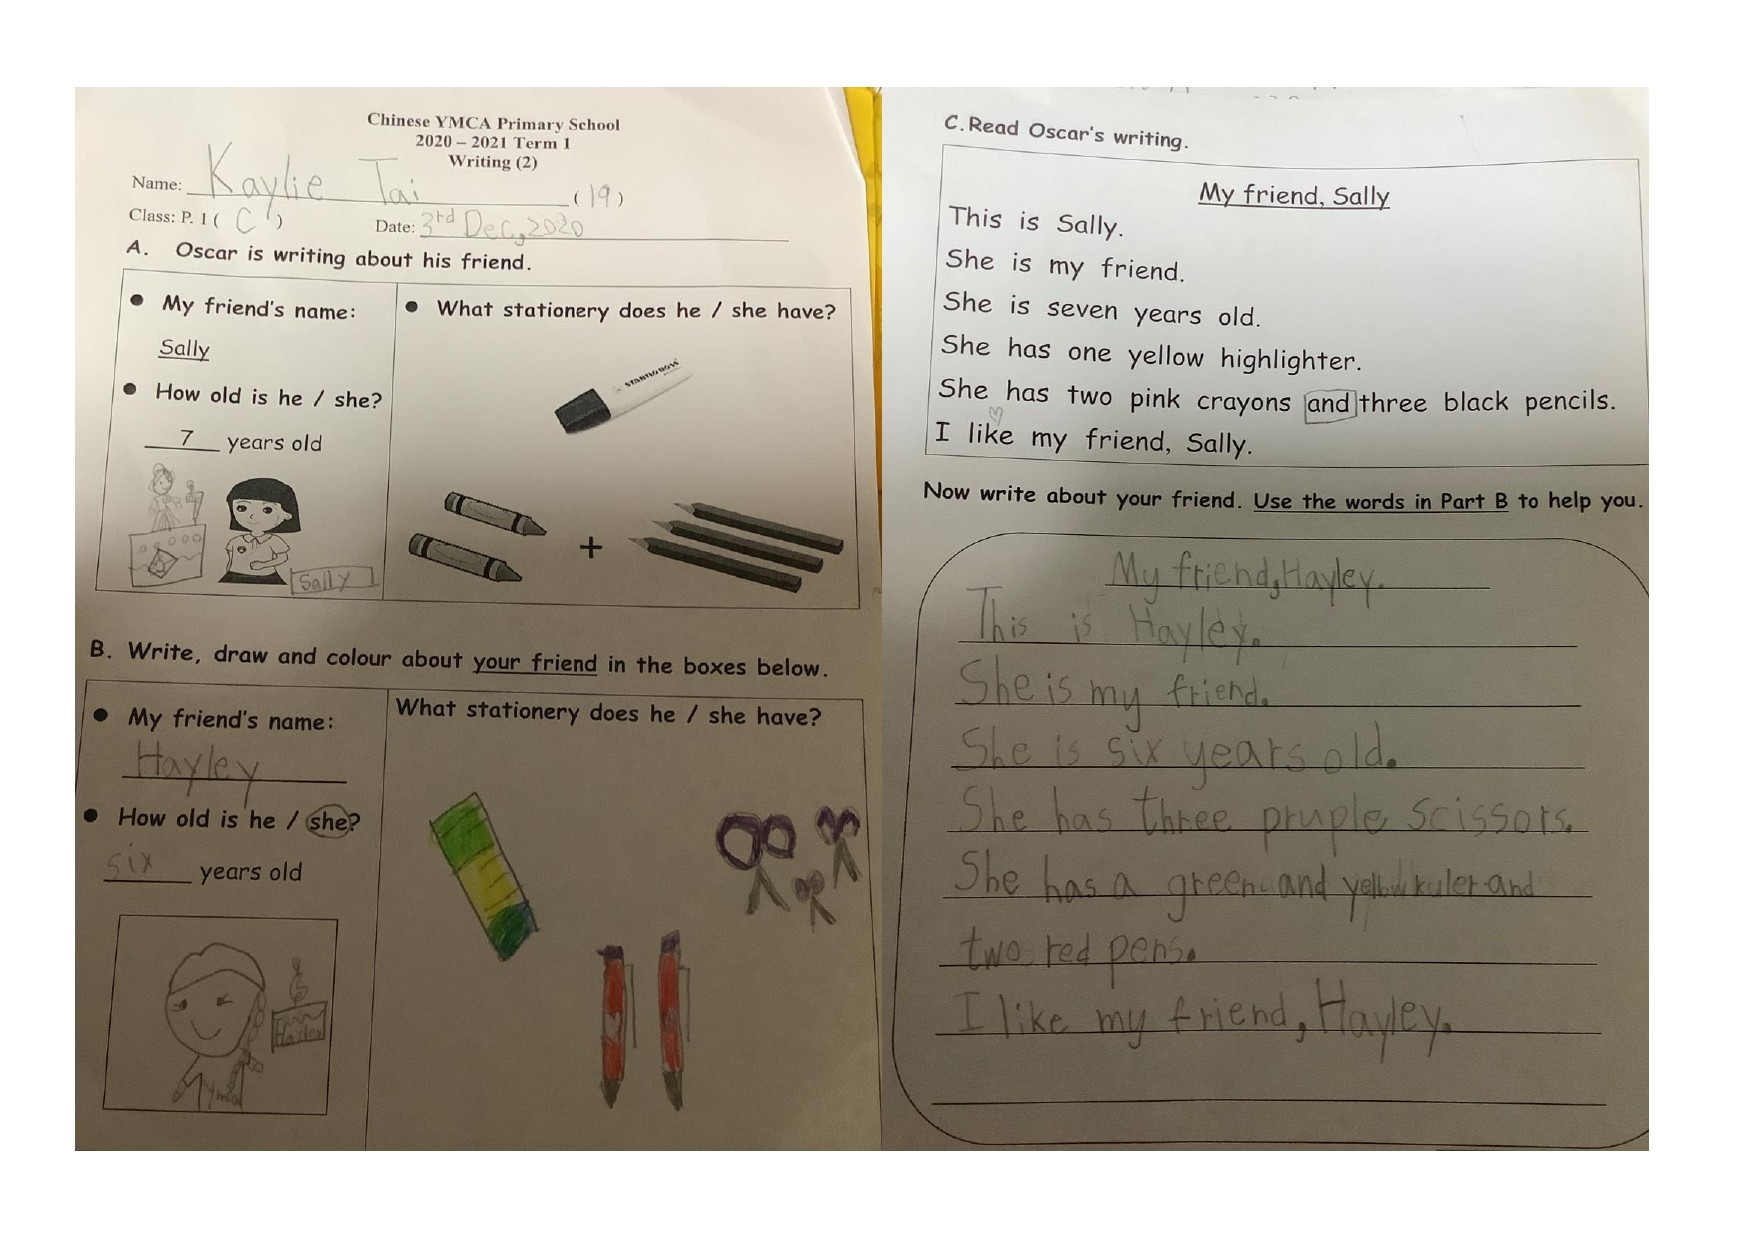 Chinese YMCA Primary School
2020 – 2021 Term 1
Writing (2)
Name: Kaylie Tai (19)
Class: P. 1 ( C ) Date: 3rd Dec, 2020
A. Oscar is writing about his friend.
● My friend's name:
Sally
● How old is he / she?
7 years old
Sally
● What stationery does he / she have?
STABILO BOSS
+
B. Write, draw and colour about your friend in the boxes below.
● My friend's name:
Hayley
● How old is he / she?
six years old
Hayley
What stationery does he / she have?
C. Read Oscar's writing.
My friend, Sally
This is Sally.
She is my friend.
She is seven years old.
She has one yellow highlighter.
She has two pink crayons and three black pencils.
I like my friend, Sally.
Now write about your friend. Use the words in Part B to help you.
My friend, Hayley.
This is Hayley.
She is my friend.
She is six years old.
She has three pruple scissors.
She has a green and yellow kuler and
two red pens.
I like my friend, Hayley.